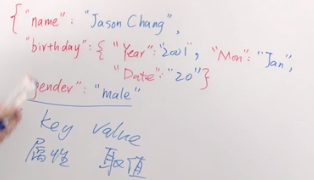 {"name": "Jason Chang",
"birthday": { "Year": "2001", "Mon": "Jan",
"Date": "20"}
gender": "male"
key value
属性 取值